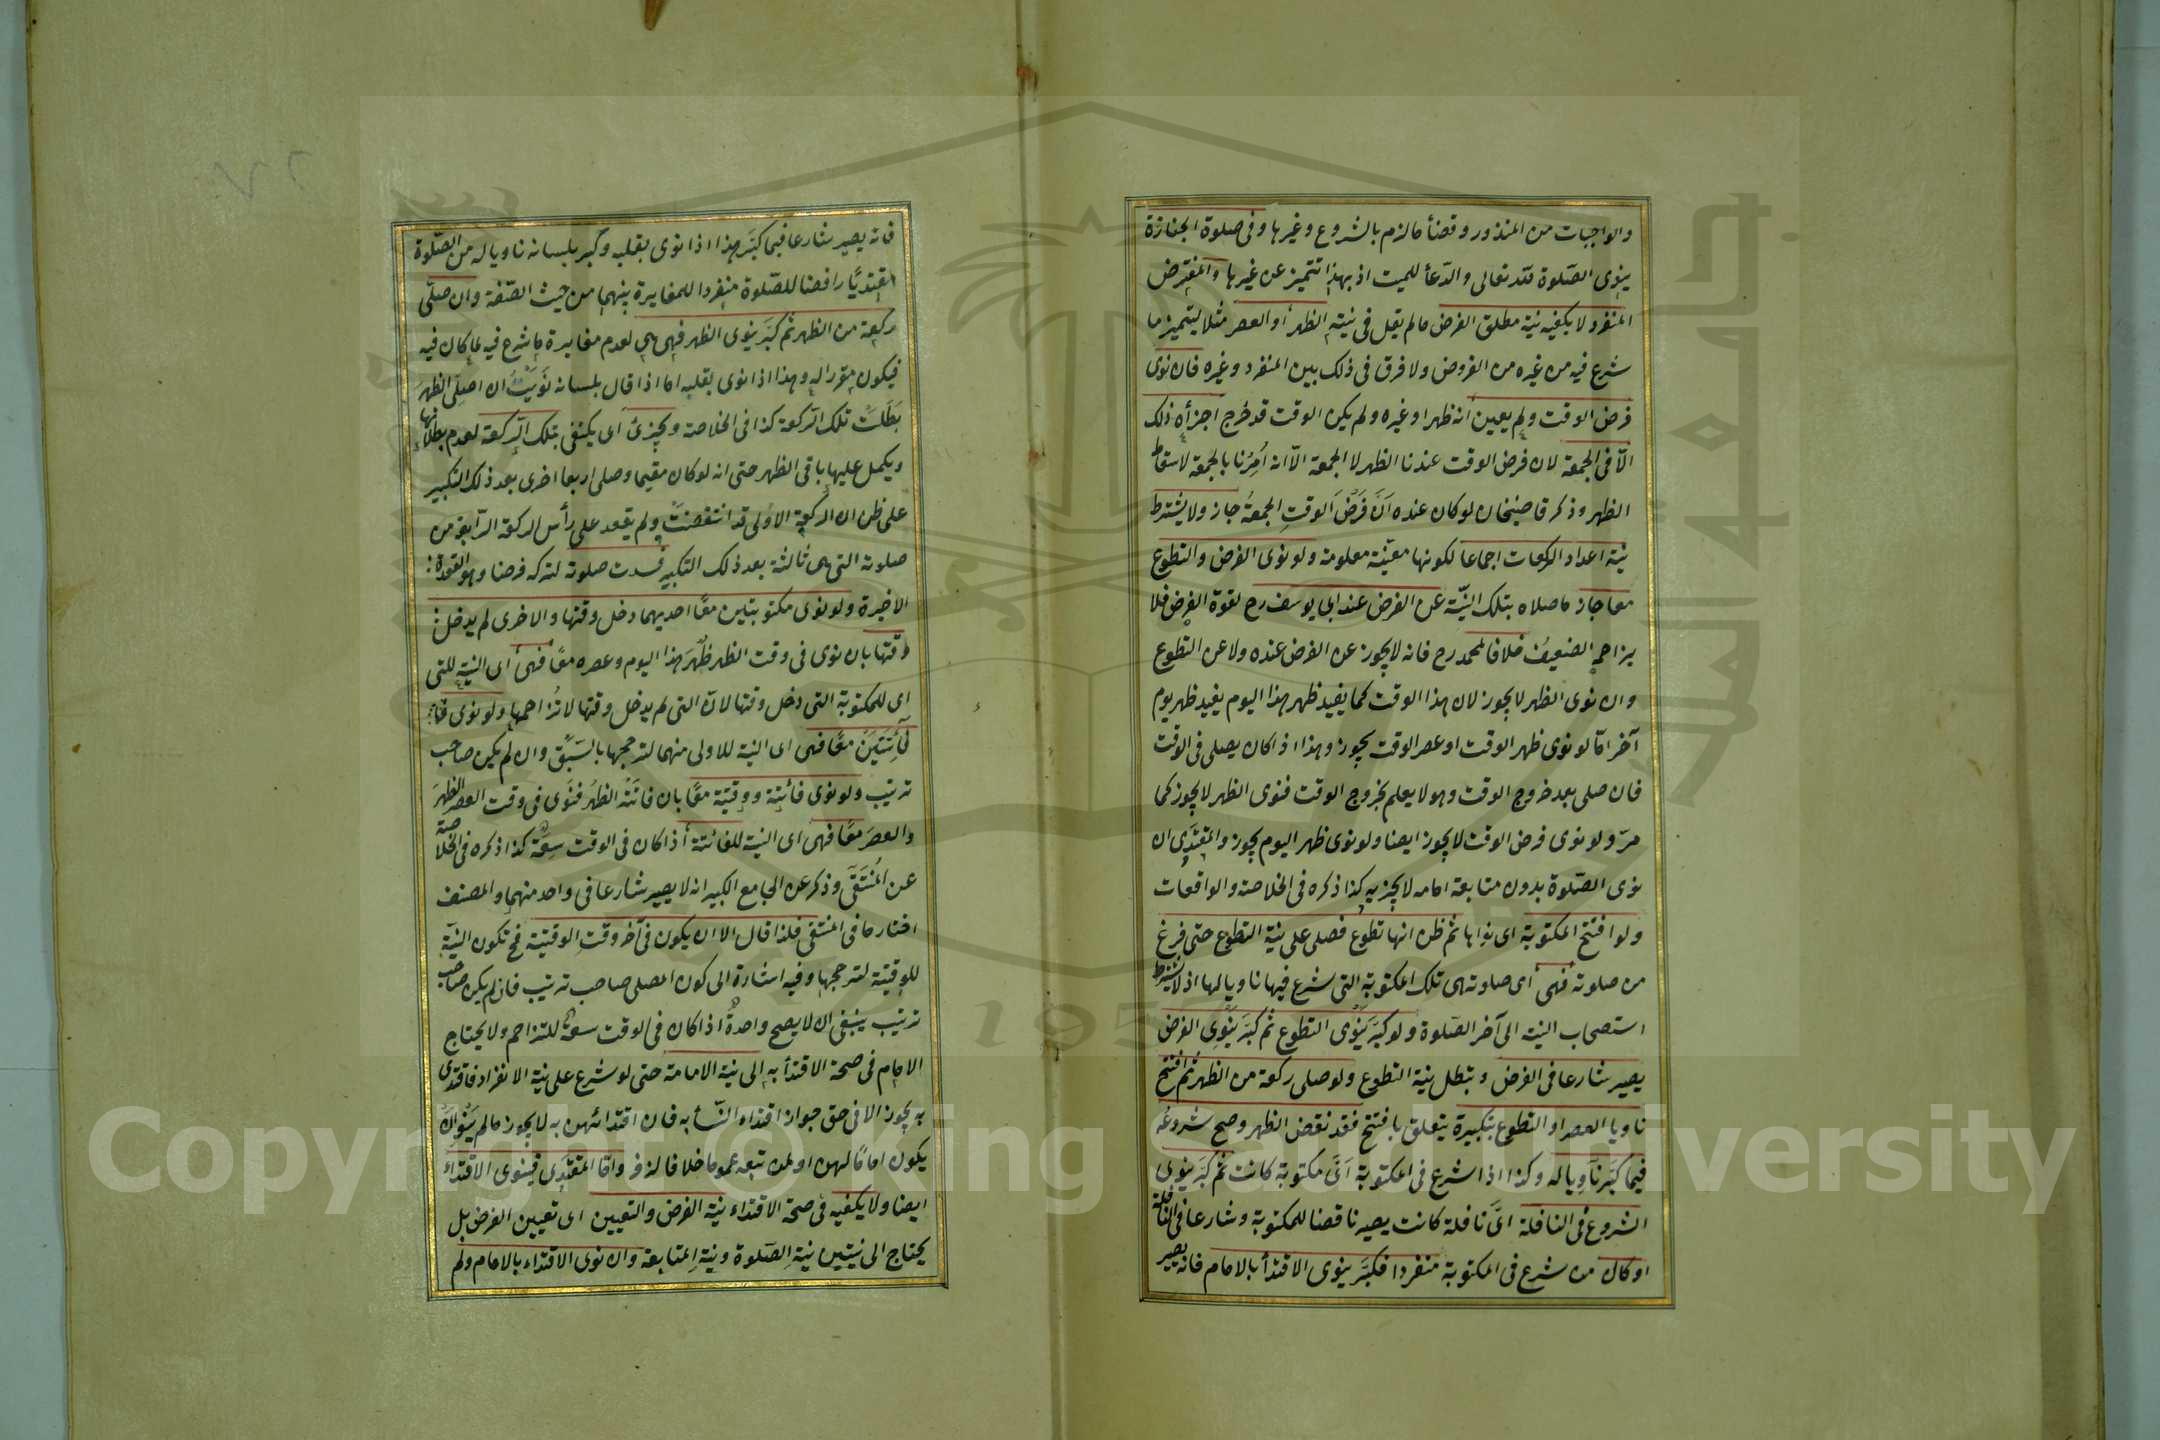 والواجبات من المنذور وقضأ مالزم بالشروع وغيرها وفى صلوة الجنازة
ينوى الصّلوة لله تعالى والدّعأ للميت اذ بهذا تتميز عن غيرها والمفترض
المنفرد لا يكفيه نية مطلق الفرض مالم يقل فى نيته الظهر أو العصر مثلا ليتميز ما
شرع فيه من غيره من الفروض ولا فرق فى ذلك بين المنفرد وغيره فان نوى
فرض الوقت ولم يعين انه ظهر او غيره ولم يكن الوقت قد خرج اجزأه ذلك
الّا فى الجمعة لان فرض الوقت عندنا الظهر لا الجمعة الّا انه أمِرْنا بالجمعة لاسقاط
الظهر وذكر قاضيخان لو كان عنده اَنَّ فَرْضَ الوقتِ الجمعةُ جاز ولا يشترط
نية اعداد الركعات اجماعا لكونها معيّنة معلومة ولو نوى الفرض والتطوع
معا جاز ما صلاه بتلك النيّة عن الفرض عند ابى يوسف رح لقوة الفرض فلا
يزاحمه الضعيف خلافا لمحمد رح فانه لا يجوز عن الفرض عنده ولا عن التطوع
وان نوى الظهر لا يجوز لان هذا الوقت كما يفيد ظهر هذا اليوم يفيد ظهر يوم
آخر امّا لو نوى ظهر الوقت او عصر الوقت يجوز وهذا اذا كان يصلى فى الوقت
فان صلى بعد خروج الوقت وهو لا يعلم بخروج الوقت فنوى الظهر لا يجوز كما
مرّ ولو نوى فرض الوقت لا يجوز ايضا ولو نوى ظهر اليوم يجوز والمقتدى ان
نوى الصّلوة بدون متابعة امامه لا يجزيه كذا ذكره فى الخلاصة والواقعات
ولو افتتح المكتوبة اى نواها ثم ظن انها تطوع فصلى على نية التطوع حتى فرغ
من صلوته فهى اى صلوته هى تلك المكتوبة التى شرع فيها ناويا لها اذ لا يشترط
استصحاب النية الى آخر الصّلوة ولو كبّر يَنْوى التطوع ثم كبّر يَنْوِى الفرض
يصير شارعا فى الفرض وتبطل نية التطوع ولو صلى ركعة من الظهر ثم افتتح
ناويا العصر او التطوع بتكبيرة يتعلق بافتتح فقد نقض الظهر وصح شروعه
فيما كبّر ناوِيا له وكذا اذا شرع فى المكتوبة اَىَّ مكتوبة كانت ثم كبّر ينوى
الشروع فى النافلة اىّ نافلة كانت يصير ناقضا للمكتوبة وشارعا فى النافلة
او كان من شرع فى المكتوبة منفردا فكبّر ينوى الاقتدأ بالامام فانه يصير
فانه يصير شارعا فيما كبّر هذا اذا نوى بقلبه وكبر بلسانه ناويا له من الصّلوة
مقتديًا رافضا للصّلوة منفردا للمغايرة بينهما من حيث الصّفة وان صلّى
ركعة من الظهر ثم كبّر ينوى الظهر فهى هى لعدم مغايرة ما شرع فيه لما كان فيه
فيكون مقررا له وهذا اذا نوى بقلبه اما اذا قال بلسانه نَوَيْتُ ان اصلّى الظهرَ
بَطَلَتْ تلك الرّكعة كذا فى الخلاصة ويجزئ اى يكتفى بتلك الرّكعة لعدم بطلانها
ويكمل عليها باقى الظهر حتى انه لو كان مقيما وصلى اربعا اخرى بعد ذلك التكبير
على ظن ان الركعة الاولى قد انتقضتْ ولم يقعد على رأس الركعة الرّابعة من
صلوته التى هى ثالثة بعد ذلك التكبير فسدت صلوته لتركه فرضا وهو القعدة
الاخيرة ولو نوى مكتوبتين معًا احديهما دخل وقتها والاخرى لم يدخل
وقتها بان نوى فى وقت الظهر ظُهْرَ هذا اليوم وعصره معًا فهى اى النية للتى
اى للمكتوبة التى دخل وقتها لانّ التى لم يدخل وقتها لا تُزاحمها ولو نوى
فَائِتَتَيْنِ معًا فهى اى النية للاولى منهما لترجحها بالسَبْق وان لم يكن صاحب
ترتيب ولو نوى فائتة ووقتية معًا بان فاتَتْه الظهرُ فنَوى فى وقت العصر الظهرَ
والعصرَ معًا فهى اى النية للفائتة اذا كان فى الوقت سِعَة كذا ذكره فى الخلاصة
عن المُنْتَقَى وذكر عن الجامع الكبير انه لا يصير شارعا فى واحد منهما والمصنف
اختار ما فى المنتقى فلذا قال الا ان يكون فى آخر وقتِ الوقتية فح تكون النيّة
للوقتية لترجحها وفيه اشارة الى كون المصلى صاحب ترتيب فان لم يكن صاحب
ترتيب ينبغى ان لا يصح واحدةٌ اذا كان فى الوقت سعةٌ للتزاحم ولا يحتاج
الامام فى صحة الاقتدأ به الى نية الامامة حتى لو شرع على نية الانفراد فاقتدى
به يجوز الا فى حق جواز اقتداء النّسأ به فان اقتدائهن به لا يجوز مالم يَنْوِ ان
يكون امامًا لهن او لمن تبعه عموما خلافا لزفر وامّا المقتدى فينوى الاقتداء
ايضا ولا يكفيه فى صحة الاقتداء نية الفرض والتعيين اى تعيين الفرض بل
يحتاج الى نيتين نية الصّلوة ونية المتابعة وان نوى الاقتداء بالامام ولم
Copyright © King Saud University
1957